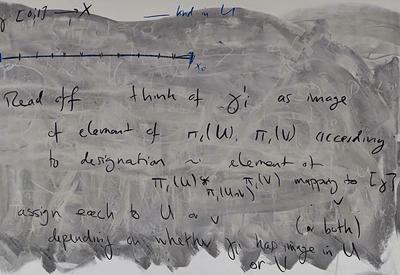 γ [0,1] → X
kind in U
x₀
Read off. think of γ'ᵢ as image
of element of π₁(U), π₁(V) according
to designation ~ element of
π₁(U) * π₁(U∩V) π₁(V) mapping to [γ]
assign each to U or V (or both)
depending on whether γᵢ has image in U
or V